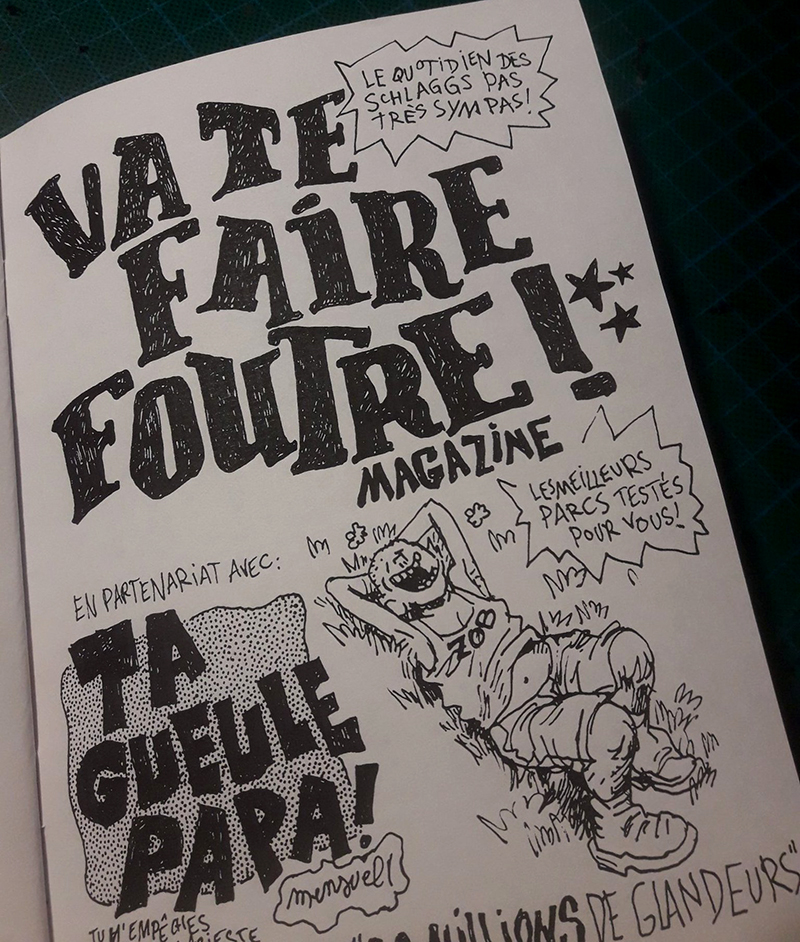 LE QUOTIDIEN DES
SCHLAGGS PAS
TRÈS SYMPAS!
VA TE
FAIRE
FOUTRE!
MAGAZINE
LES MEILLEURS
PARCS TESTÉS
POUR VOUS!
EN PARTENARIAT AVEC:
ZOB
TA
GUEULE
PAPA!
mensuel!
TU M'EMPÊCHES
MILLIONS DE GLANDEURS"